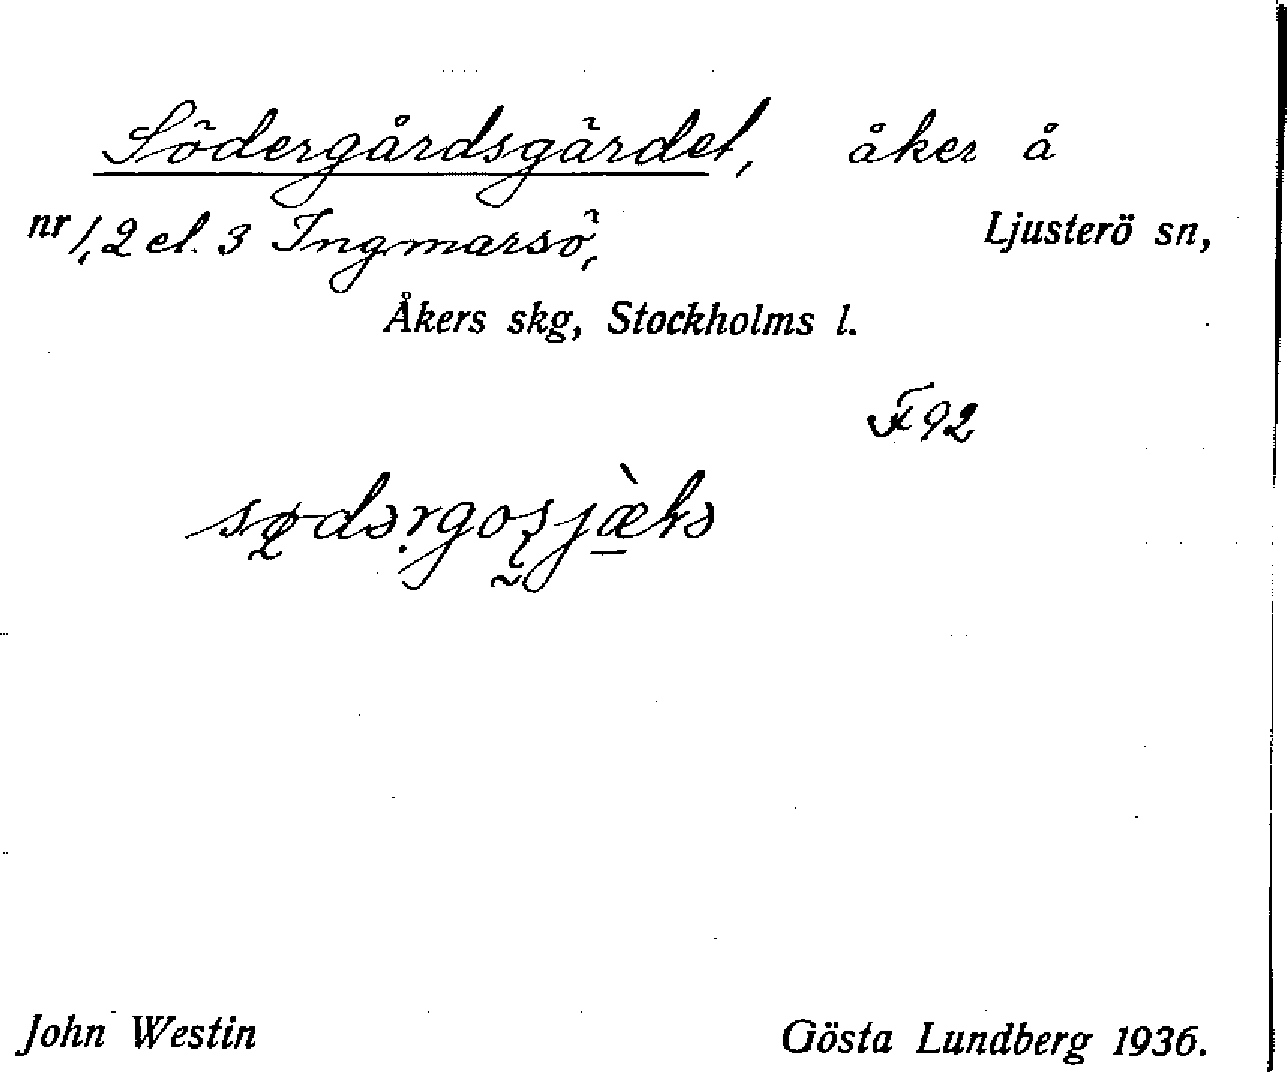 Södergårdsgärdet, åker å
nr 1, 2 el. 3 Ingmarsö, Ljusterö sn,
Åkers skg, Stockholms l.
F 92
John Westin Gösta Lundberg 1936.